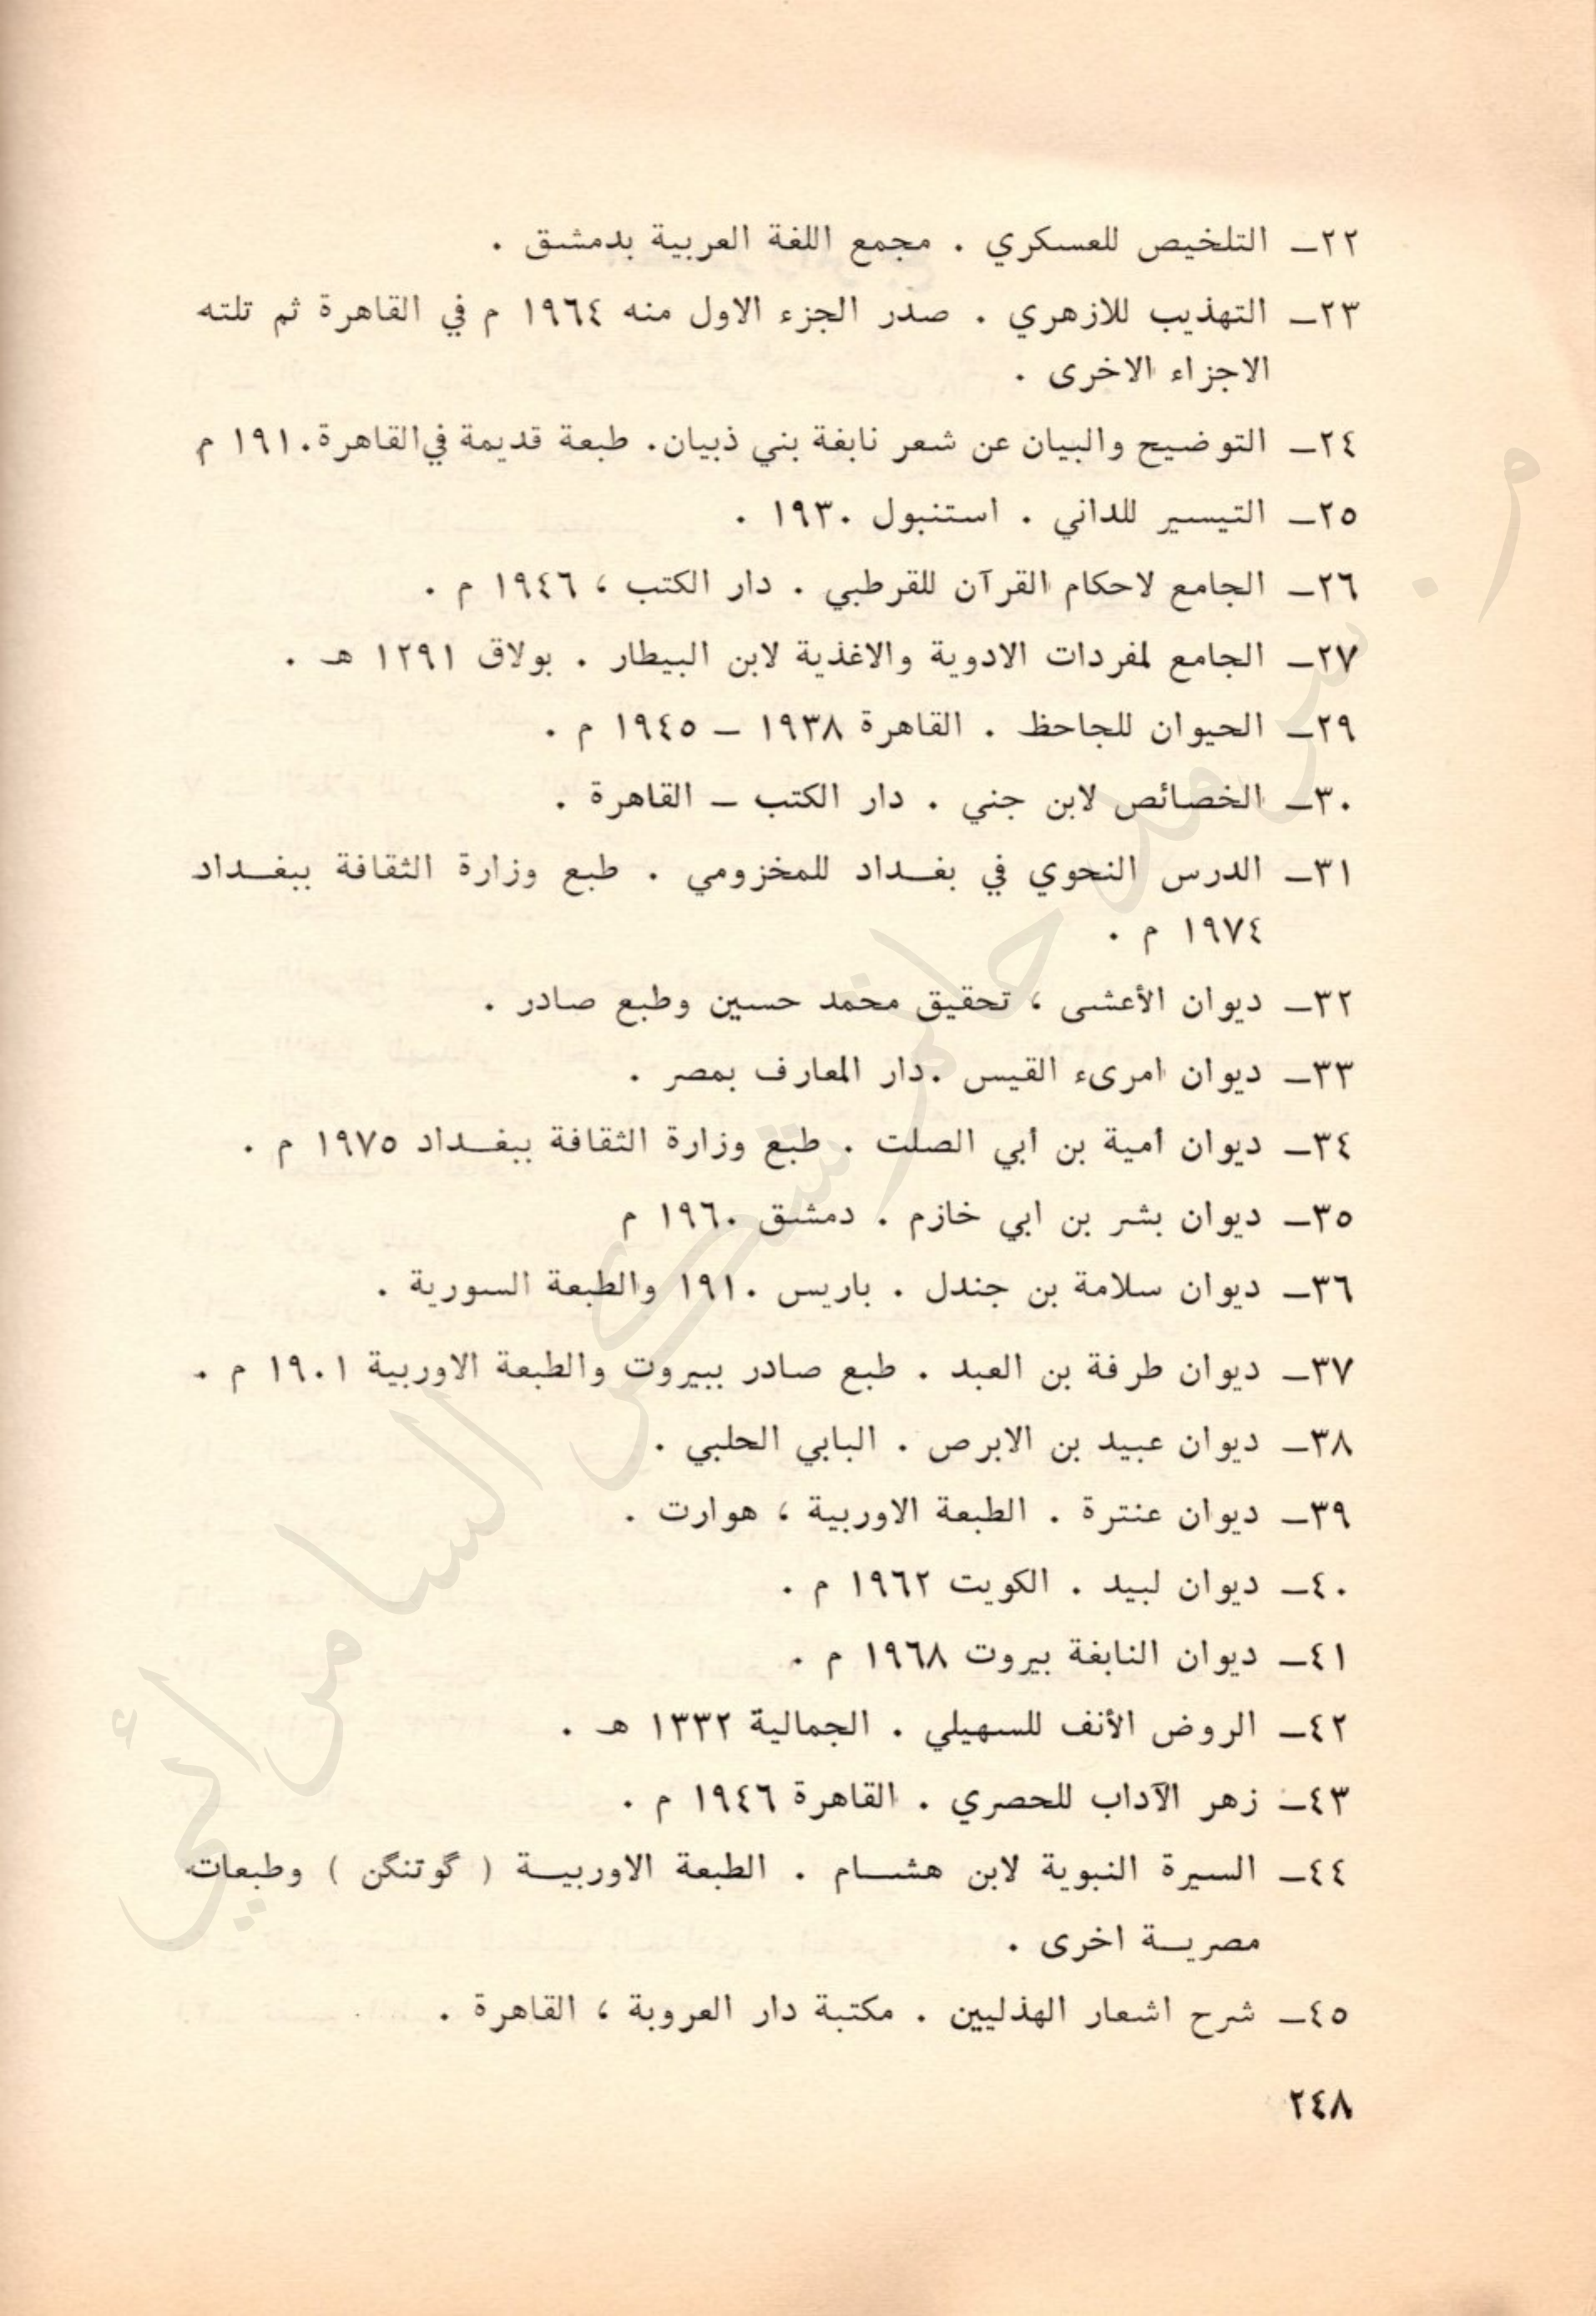 ٢٢ـ التلخيص للعسكري . مجمع اللغة العربية بدمشق .
٢٣ـ التهذيب للازهري . صدر الجزء الاول منه ١٩٦٤ م في القاهرة ثم تلته
الاجزاء الاخرى .
٢٤ـ التوضيح والبيان عن شعر نابغة بني ذبيان. طبعة قديمة في القاهرة ١٩١٠ م
٢٥ـ التيسير للداني . استنبول ١٩٣٠ .
٢٦ـ الجامع لاحكام القرآن للقرطبي . دار الكتب ، ١٩٤٦ م .
٢٧ـ الجامع لمفردات الادوية والاغذية لابن البيطار . بولاق ١٢٩١ هـ .
٢٩ـ الحيوان للجاحظ . القاهرة ١٩٣٨ ـ ١٩٤٥ م .
٣٠ـ الخصائص لابن جني . دار الكتب ـ القاهرة .
٣١ـ الدرس النحوي في بغـداد للمخزومي . طبع وزارة الثقافة ببغـداد
١٩٧٤ م .
٣٢ـ ديوان الأعشى ، تحقيق محمد حسين وطبع صادر .
٣٣ـ ديوان امرىء القيس .دار المعارف بمصر .
٣٤ـ ديوان أمية بن أبي الصلت . طبع وزارة الثقافة ببغـداد ١٩٧٥ م .
٣٥ـ ديوان بشر بن ابي خازم . دمشق ١٩٦٠ م
٣٦ـ ديوان سلامة بن جندل . باريس ١٩١٠ والطبعة السورية .
٣٧ـ ديوان طرفة بن العبد . طبع صادر ببيروت والطبعة الاوربية ١٩٠١ م .
٣٨ـ ديوان عبيد بن الابرص . البابي الحلبي .
٣٩ـ ديوان عنترة . الطبعة الاوربية ، هوارت .
٤٠ـ ديوان لبيد . الكويت ١٩٦٢ م .
٤١ـ ديوان النابغة بيروت ١٩٦٨ م .
٤٢ـ الروض الأنف للسهيلي . الجمالية ١٣٣٢ هـ .
٤٣ـ زهر الآداب للحصري . القاهرة ١٩٤٦ م .
٤٤ـ السيرة النبوية لابن هشـام . الطبعة الاوربيـة ( گوتنگن ) وطبعات
مصريـة اخرى .
٤٥ـ شرح اشعار الهذليين . مكتبة دار العروبة ، القاهرة .
٢٤٨
م. سرمد حاتم شكر السامرائي